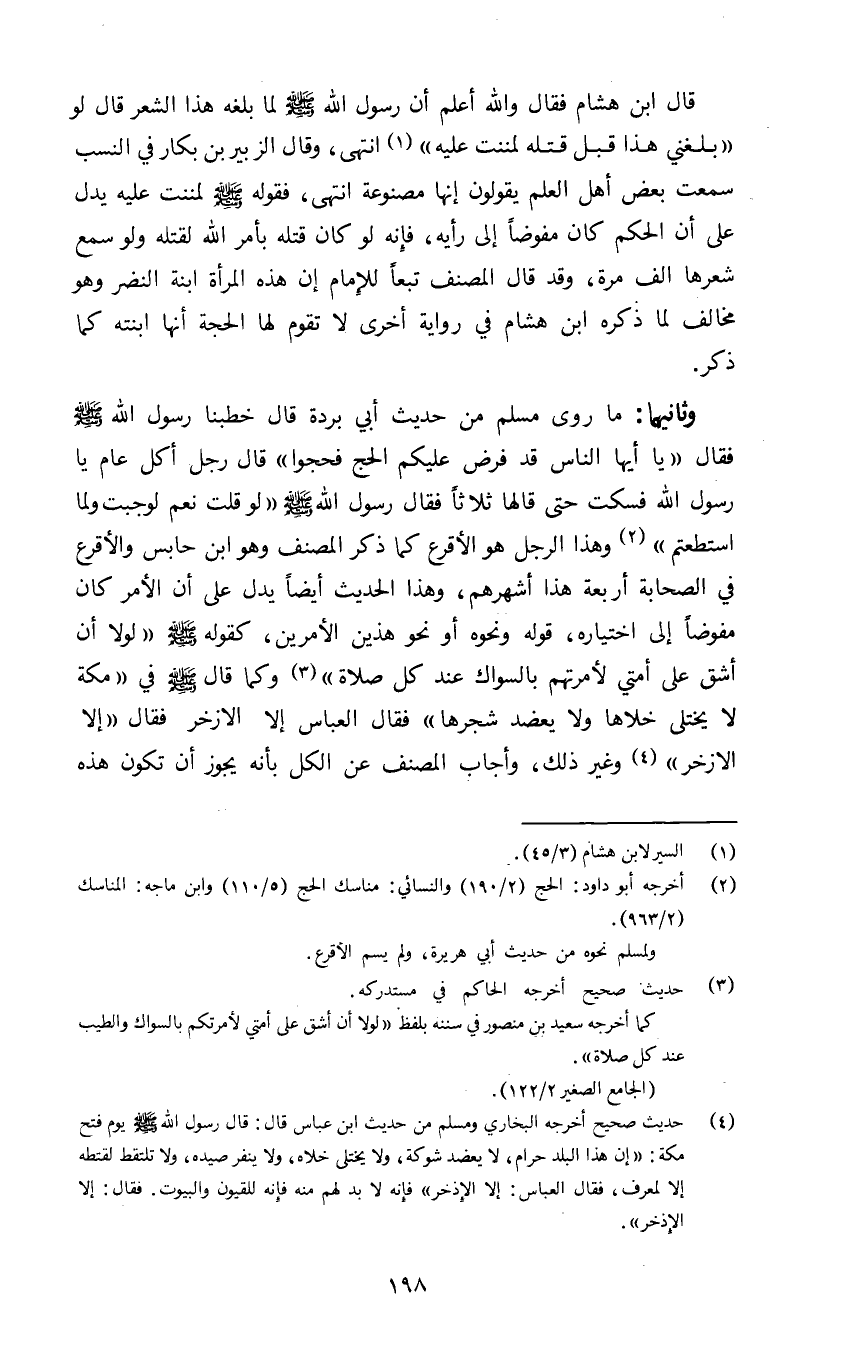 قال ابن هشام فقال والله أعلم أن رسول الله ﷺ لما بلغه هذا الشعر قال لو
«بلغني هذا قبل قتله لمننت عليه» (١) انتهى، وقال الزبير بن بكار في النسب
سمعت بعض أهل العلم يقولون إنها مصنوعة انتهى، فقوله ﷺ لمننت عليه يدل
على أن الحكم كان مفوضاً إلى رأيه، فإنه لو كان قتله بأمر الله لقتله ولو سمع
شعرها الف مرة، وقد قال المصنف تبعاً للإمام إن هذه المرأة ابنة النضر وهو
مخالف لما ذكره ابن هشام في رواية أخرى لا تقوم لها الحجة أنها ابنته كما
ذكر.
وثانيها: ما روى مسلم من حديث أبي بردة قال خطبنا رسول الله ﷺ
فقال «يا أيها الناس قد فرض عليكم الحج فحجوا» قال رجل أكل عام يا
رسول الله فسكت حتى قالها ثلاثاً فقال رسول الله ﷺ «لو قلت نعم لوجبت ولما
استطعتم» (٢) وهذا الرجل هو الأقرع كما ذكر المصنف وهو ابن حابس والأقرع
في الصحابة أربعة هذا أشهرهم، وهذا الحديث أيضاً يدل على أن الأمر كان
مفوضاً إلى اختياره، قوله ونحوه أو نحو هذين الأمرين، كقوله ﷺ «لولا أن
أشق على أمتي لأمرتهم بالسواك عند كل صلاة» (٣) وكما قال ﷺ في «مكة
لا يختلى خلاها ولا يعضد شجرها» فقال العباس إلا الازخر فقال «إلا
الازخر» (٤) وغير ذلك، وأجاب المصنف عن الكل بأنه يجوز أن تكون هذه
(١) السير لابن هشام (٤٥/٣).
(٢) أخرجه أبو داود: الحج (١٩٠/٢) والنسائي: مناسك الحج (١١٠/٥) وابن ماجه: المناسك
(٩٦٣/٢).
ولمسلم نحوه من حديث أبي هريرة، ولم يسم الأقرع.
(٣) حديث صحيح أخرجه الحاكم في مستدركه.
كما أخرجه سعيد بن منصور في سننه بلفظ «لولا أن أشق على أمتي لأمرتكم بالسواك والطيب
عند كل صلاة».
(الجامع الصغير ١٢٢/٢).
(٤) حديث صحيح أخرجه البخاري ومسلم من حديث ابن عباس قال: قال رسول الله ﷺ يوم فتح
مكة: «إن هذا البلد حرام، لا يعضد شوكة، ولا يختلى خلاه، ولا ينفر صيده، ولا تلتقط لقتطه
إلا لمعرف، فقال العباس: إلا الإذخر» فإنه لا بد لهم منه فإنه للقيون والبيوت. فقال: إلا
الإذخر».
١٩٨